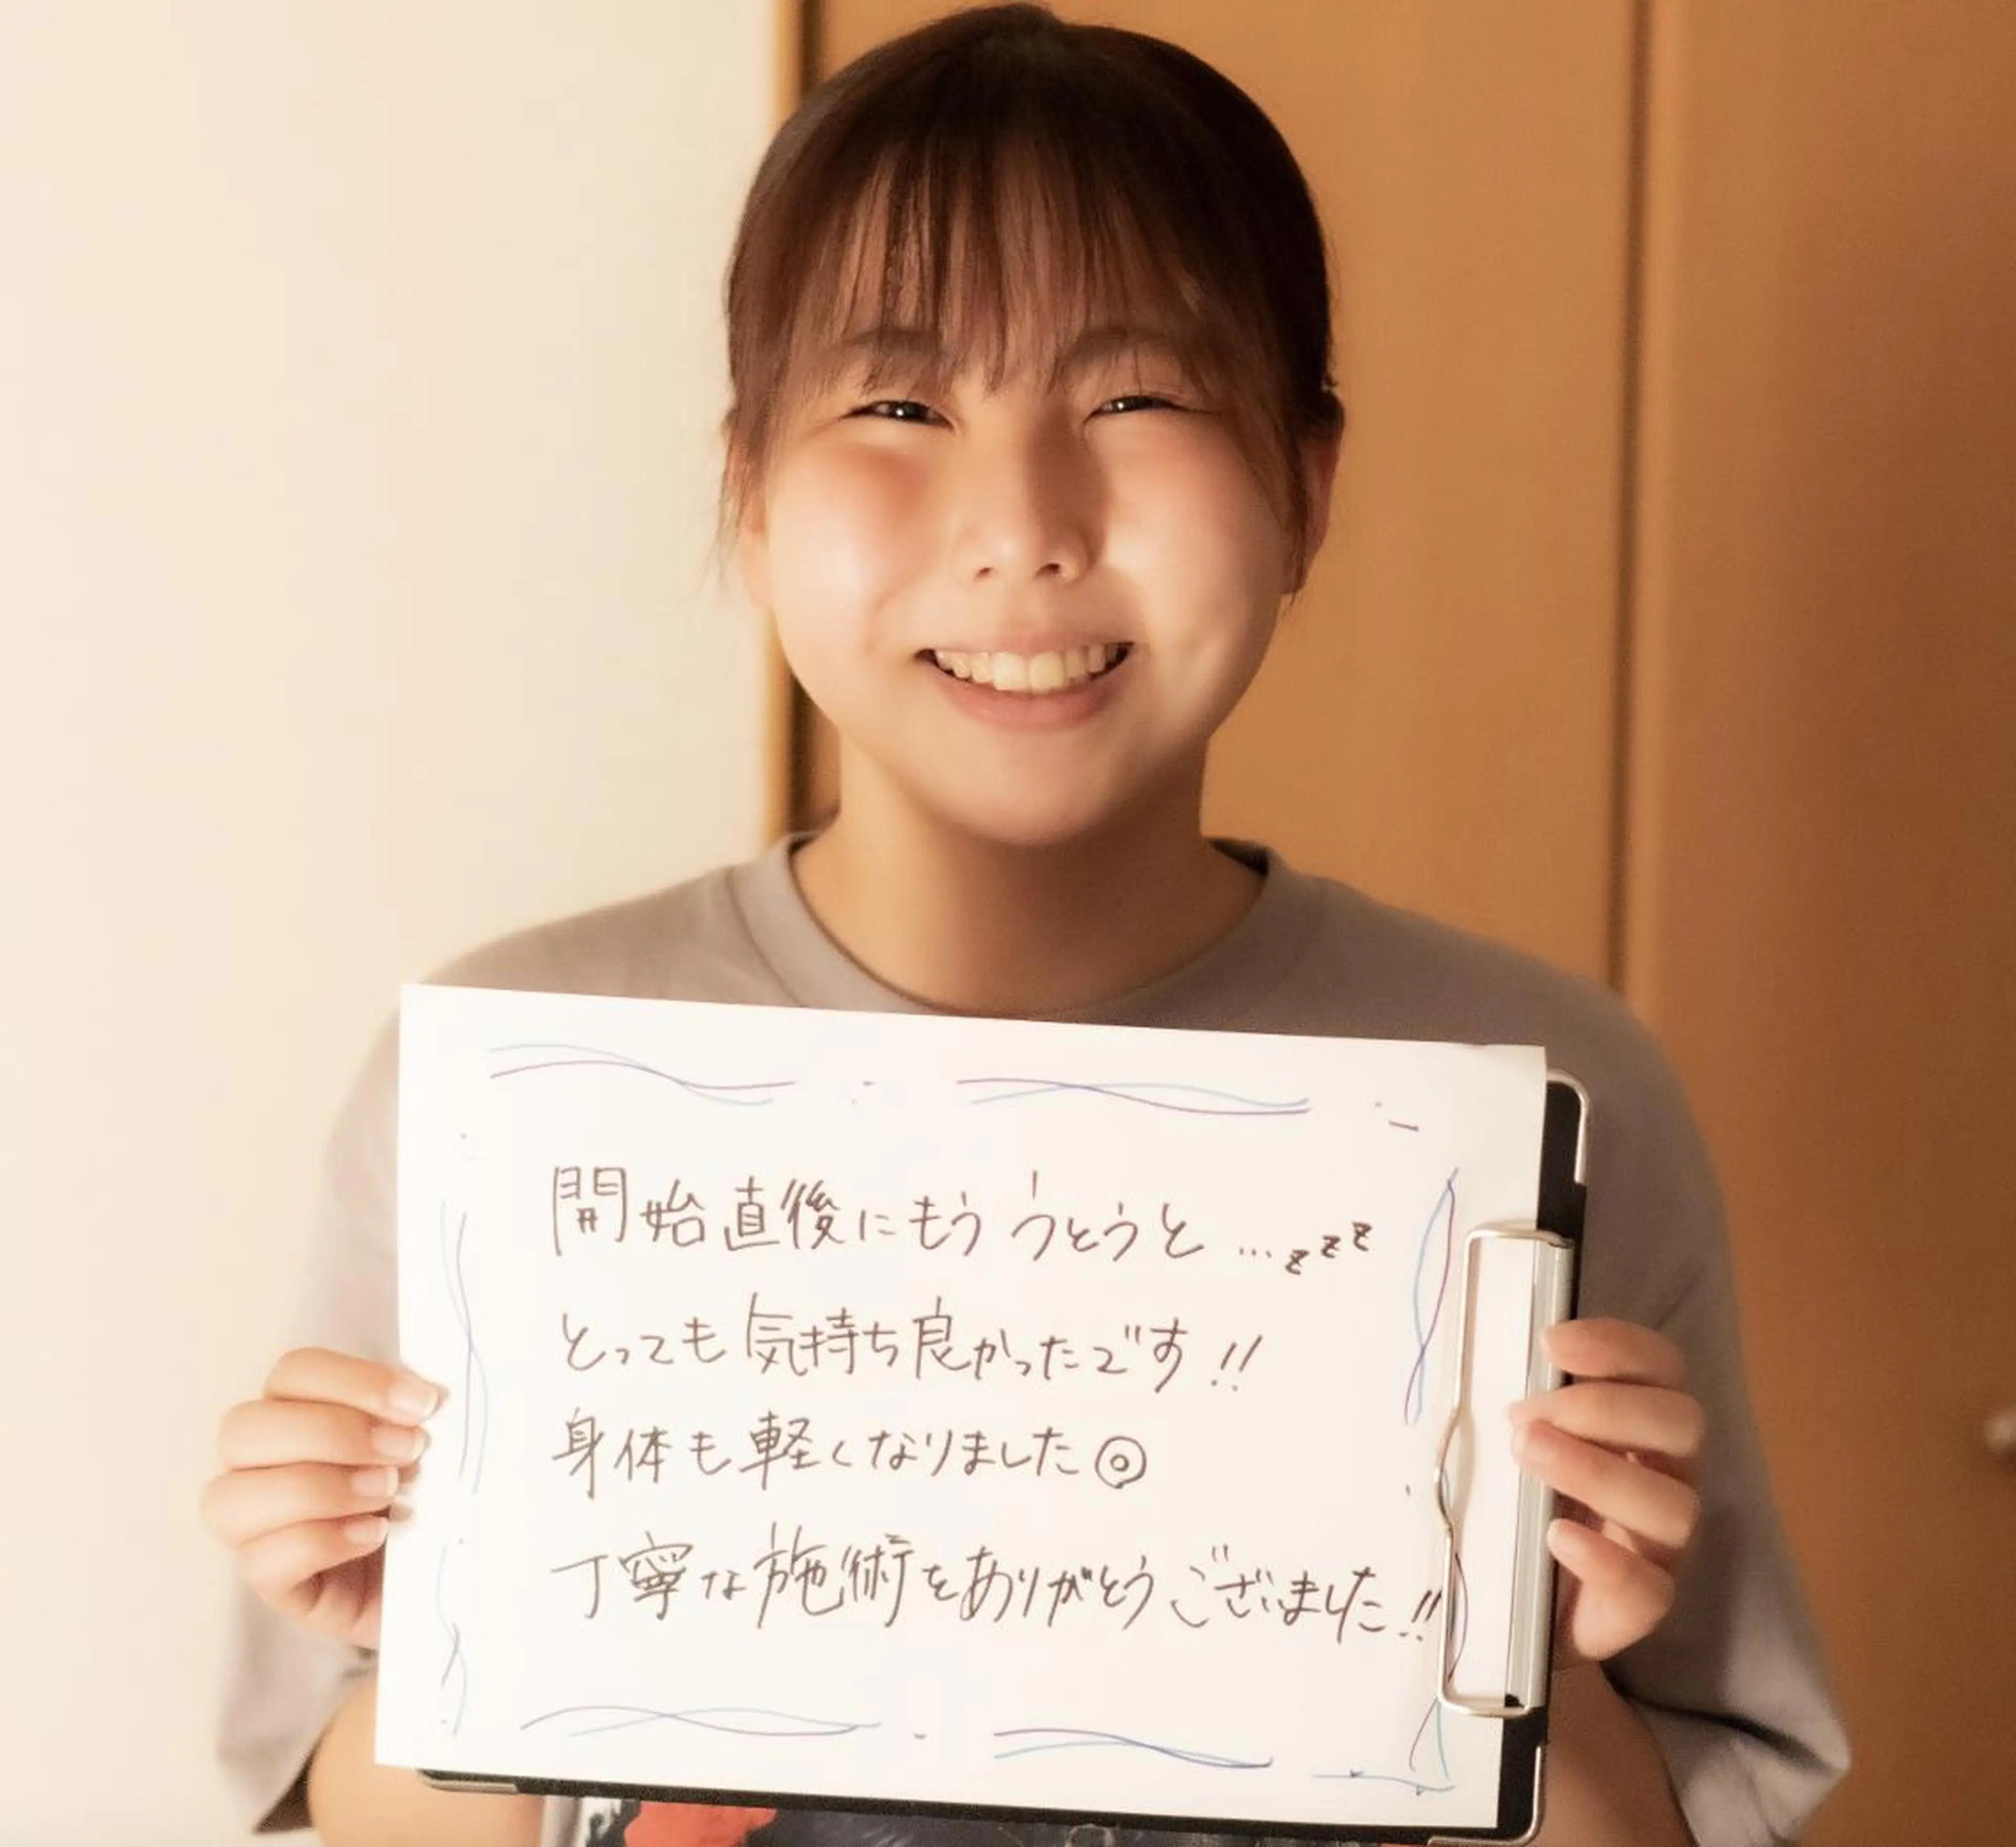 開始直後にもううとうと…zzz
とっても気持ち良かったです!!
身体も軽くなりました◎
丁寧な施術をありがとうございました!!